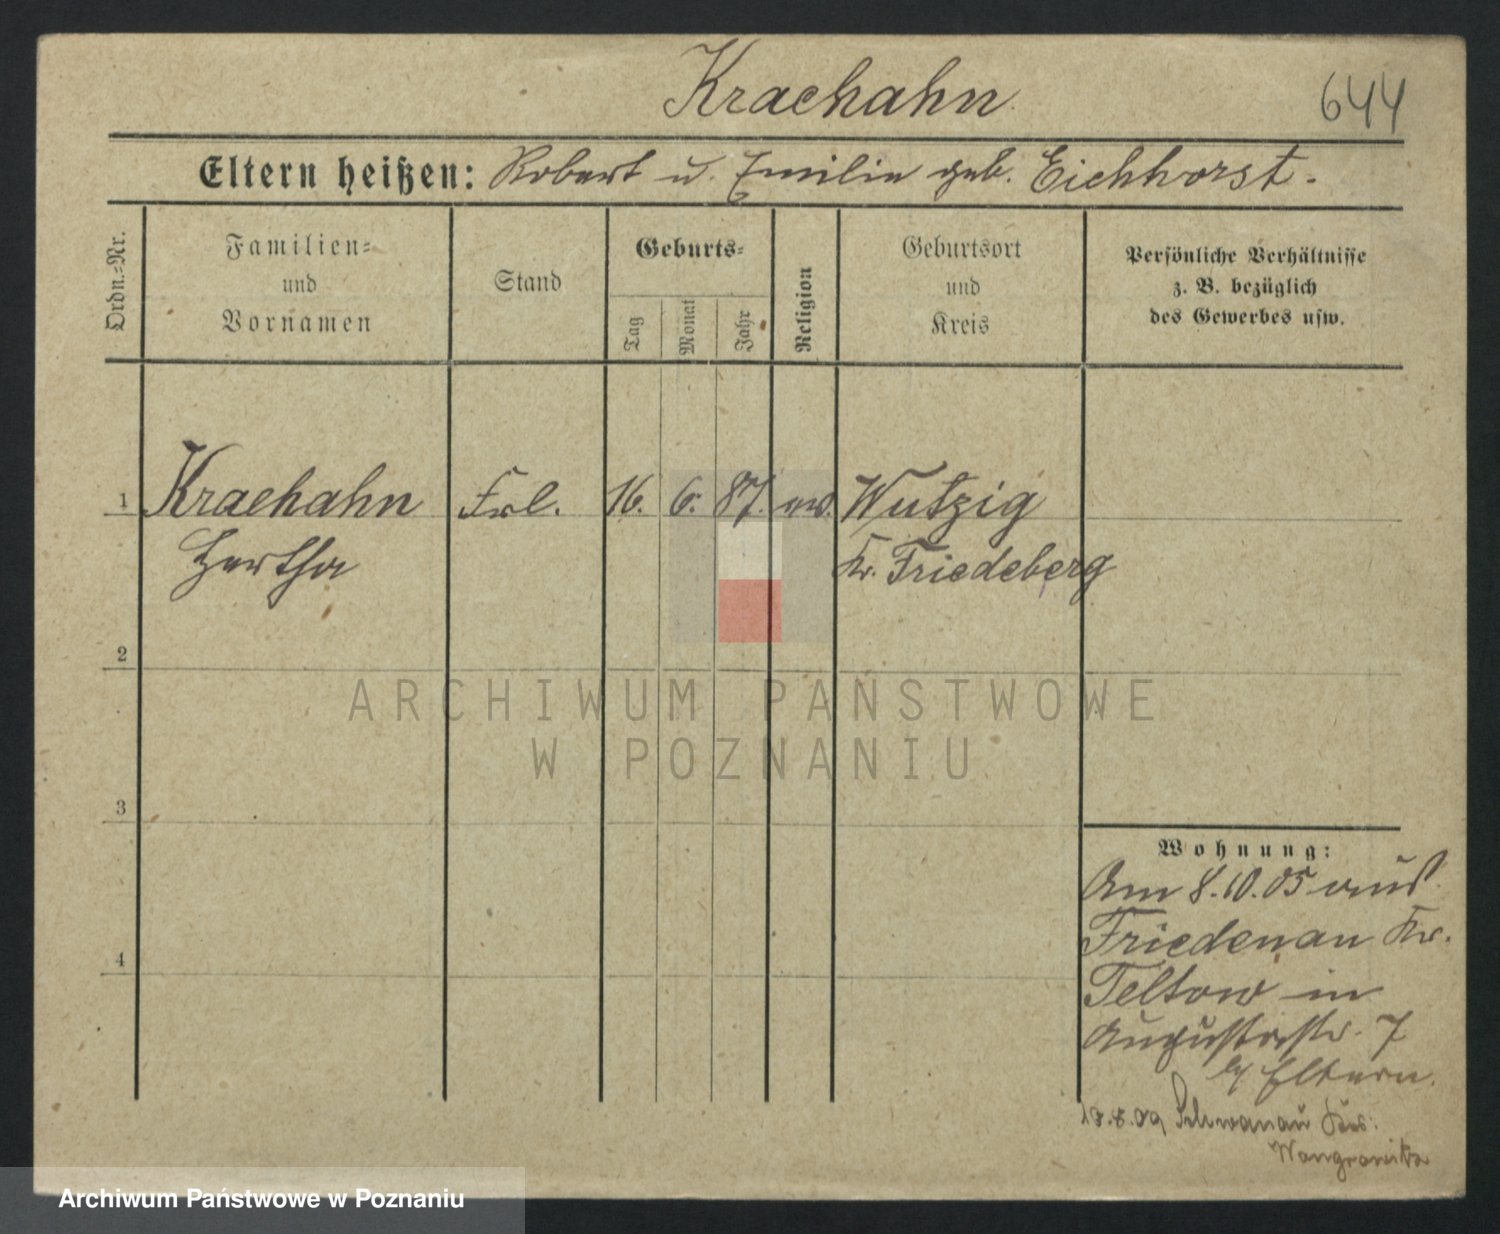 Kraehahn
644
Eltern heißen: Robert u. Emilie geb. Eichhorst.
Ordn.-Nr.
Familien-
und
Vornamen
Stand
Geburts-
Tag
Monat
Jahr
Religion
Geburtsort
und
Kreis
Persönliche Verhältnisse
z. B. bezüglich
des Gewerbes usw.
1 Kraehahn Frl. 16. 6. 87. ev. Wutzig
Hertha Kr. Friedeberg
2
3
4
Wohnung:
Am 8.10.05 aus
Friedenau Kr.
Teltow in
Augustastr. 7
b/ Eltern.
8.09 Schwanau Krs.
Wongrowitz
ARCHIWUM PAŃSTWOWE
W POZNANIU
Archiwum Państwowe w Poznaniu